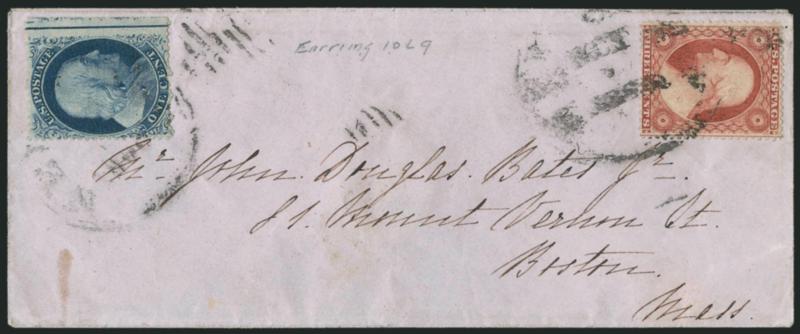 U.S. POSTAGE
ONE CENT
Earring 10L9
U.S. POSTAGE
THREE CENTS
Mr. John. Douglas. Bates Jr.
81. Mount Vernon St.
Boston.
Mass.